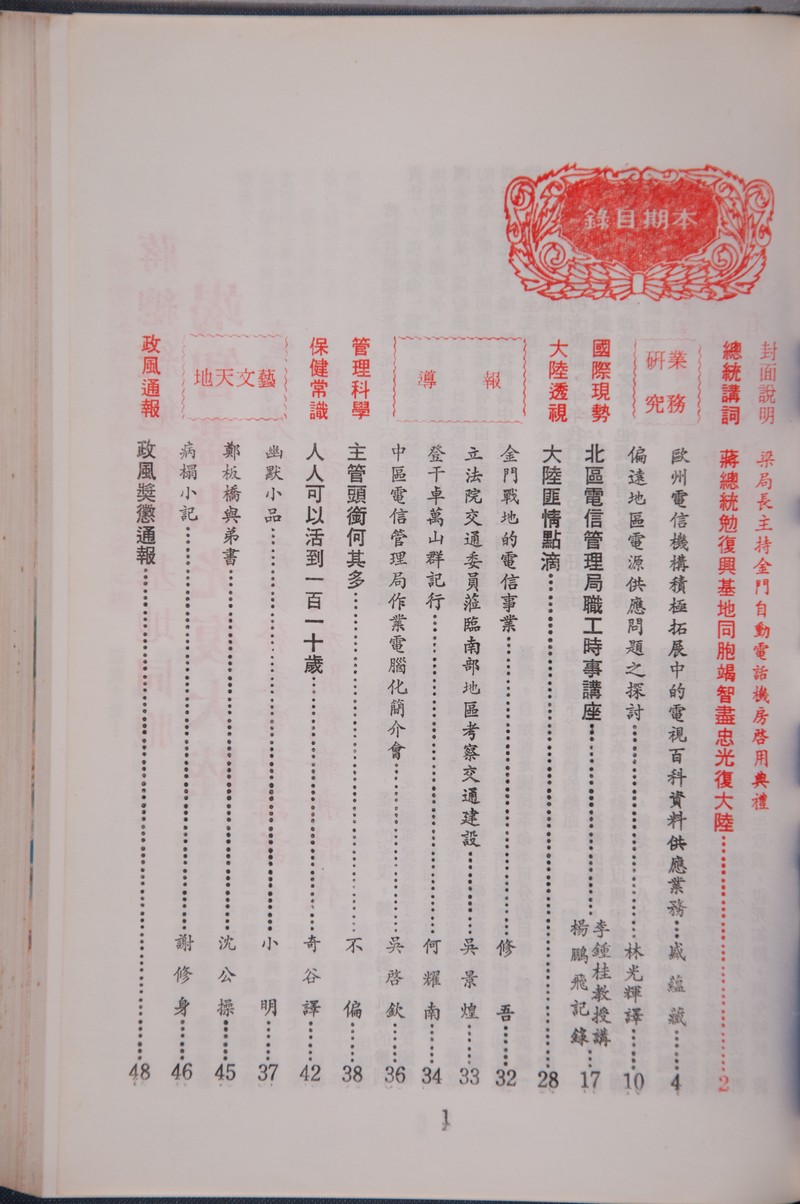 本期目錄
封面說明 梁局長主持金門自動電話機房啓用典禮
總統講詞 蔣總統勉復興基地同胞竭智盡忠光復大陸……2
業務研究
歐州電信機構積極拓展中的電視百科資料供應業務…戚蘊藏……4
偏遠地區電源供應問題之探討……林光輝譯……10
國際現勢 北區電信管理局職工時事講座……李鍾桂教授講 楊鵬飛記錄…17
大陸透視 大陸匪情點滴……28
報導
金門戰地的電信事業……修吾……32
立法院交通委員蒞臨南部地區考察交通建設……吳景煌……33
登干卓萬山群記行……何耀南……34
中區電信管理局作業電腦化簡介會……吳啓欽……36
管理科學 主管頭銜何其多……不偏……38
保健常識 人人可以活到一百一十歲……奇谷譯……42
藝文天地
幽默小品……小明……37
鄭板橋與弟書……沈公操……45
病榻小記……謝修身……46
政風通報 政風獎懲通報……48
1